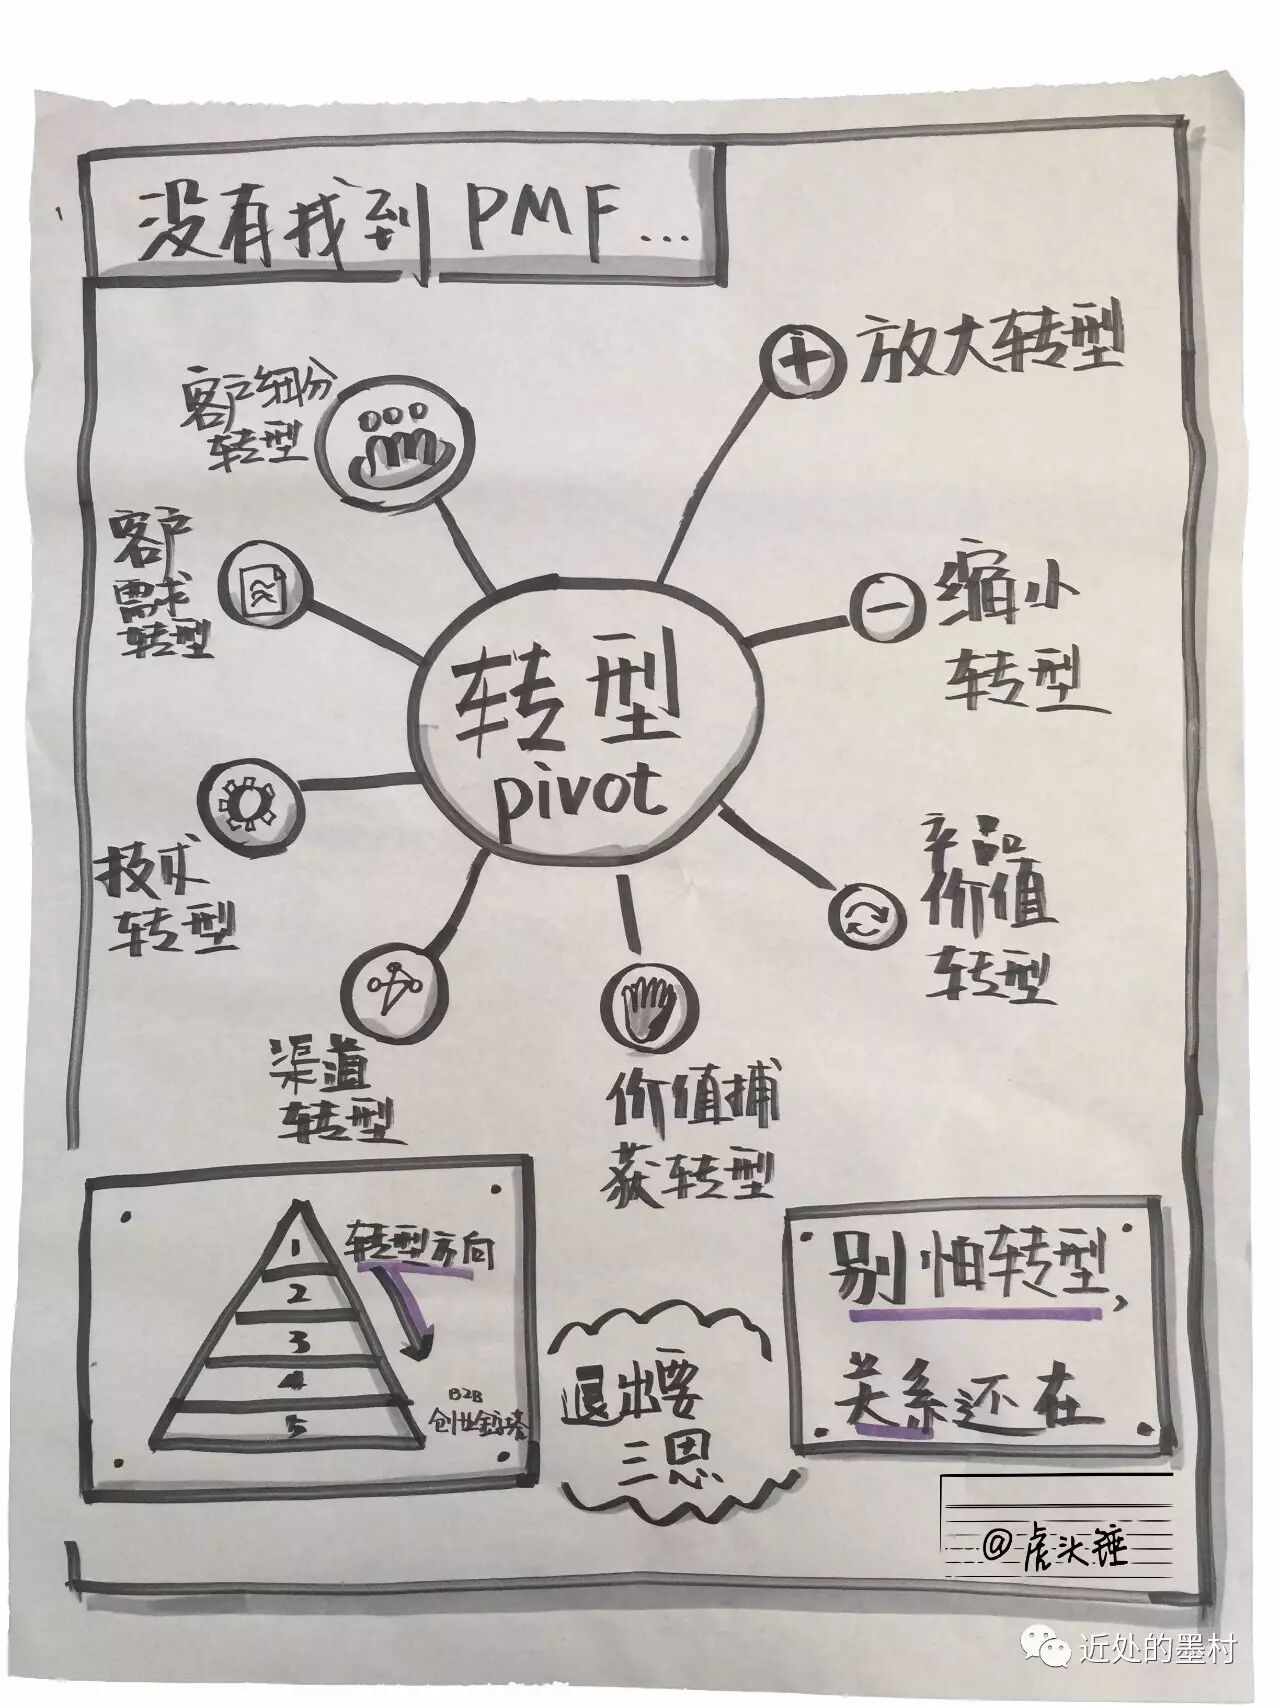 没有找到 PMF...
放大转型
客户细分
转型
客户
需求
转型
缩小
转型
转型
pivot
技术
转型
产品
价值
转型
渠道
转型
价值捕
获转型
1
2
3
4
5
转型方向
B2B
创业金字塔
退出要
三思
别怕转型,
关系还在
@虎头锤
近处的墨村